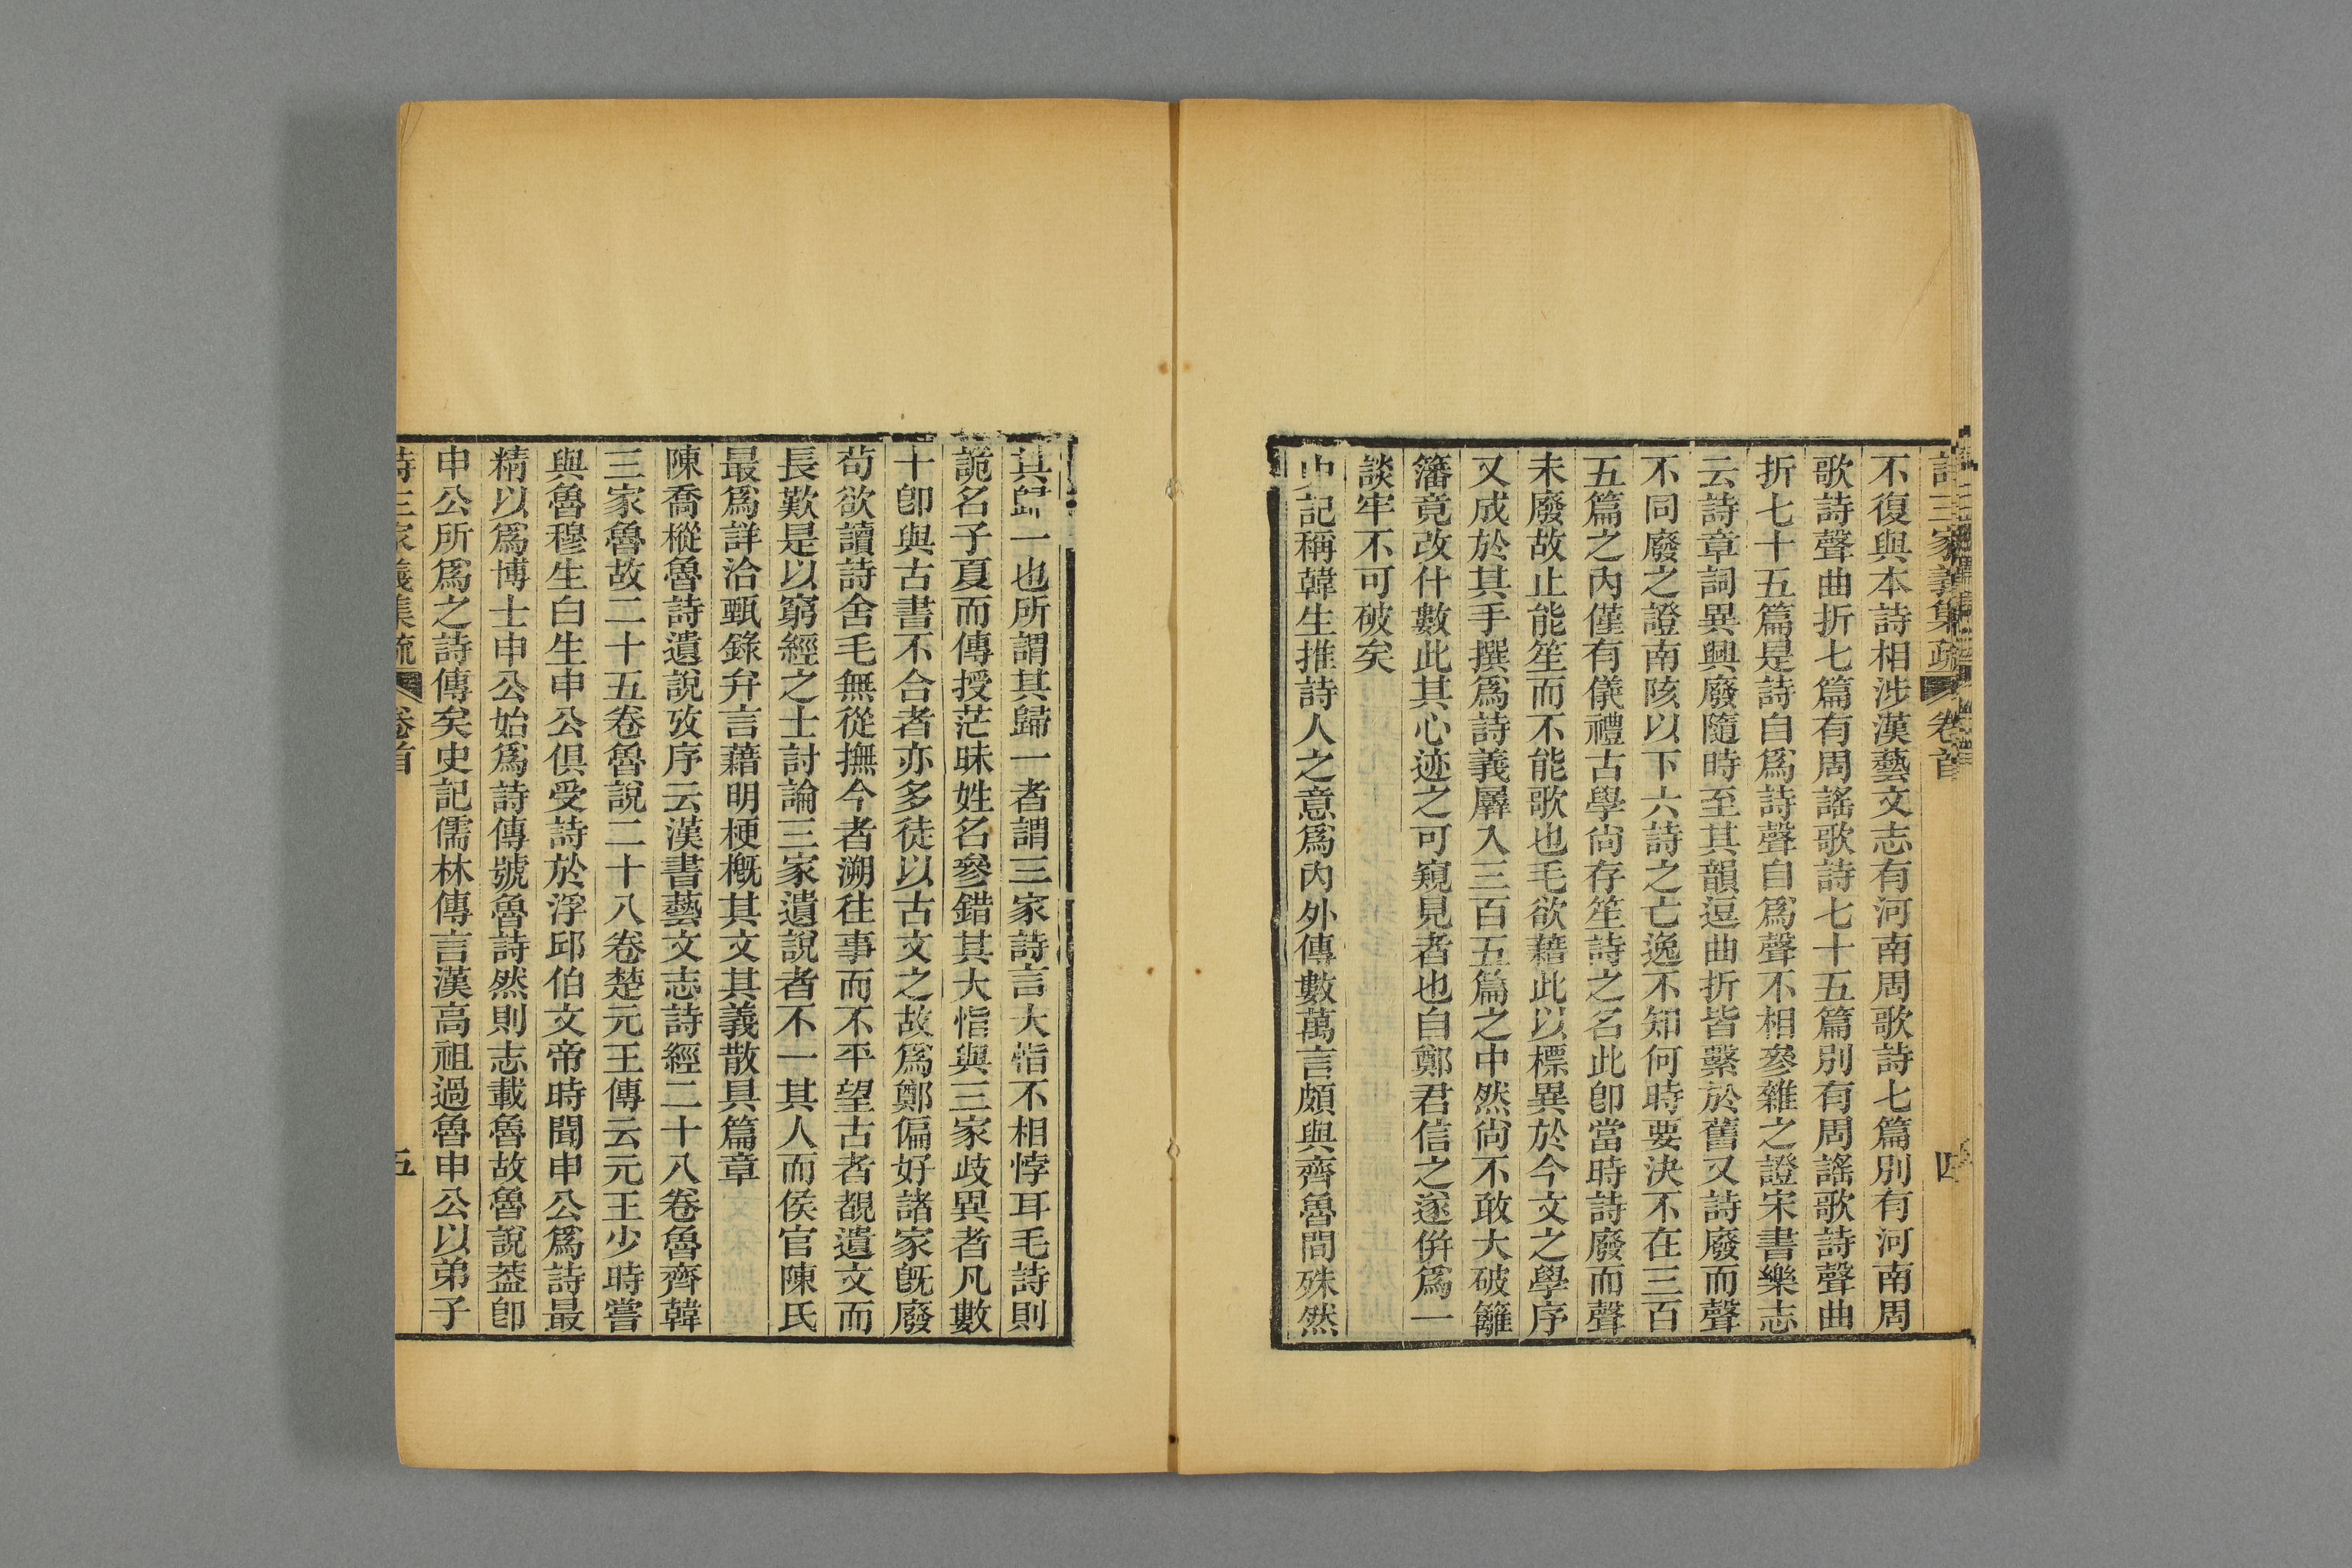 詩三家義集疏 卷首 四
不復與本詩相涉漢藝文志有河南周歌詩七篇別有河南周
歌詩聲曲折七篇有周謠歌詩七十五篇別有周謠歌詩聲曲
折七十五篇是詩自爲詩聲自爲聲不相參雜之證宋書樂志
云詩章詞異興廢隨時至其韻逗曲折皆繫於舊又詩廢而聲
不同廢之證南陔以下六詩之亡逸不知何時要決不在三百
五篇之內僅有儀禮古學尙存笙詩之名此卽當時詩廢而聲
未廢故止能笙而不能歌也毛欲藉此以標異於今文之學序
又成於其手撰爲詩義羼入三百五篇之中然尙不敢大破籬
籓竟改什數此其心迹之可窺見者也自鄭君信之遂併爲一
談牢不可破矣
史記稱韓生推詩人之意爲內外傳數萬言頗與齊魯間殊然
其歸一也所謂其歸一者謂三家詩言大恉不相悖耳毛詩則
詭名子夏而傳授茫昧姓名參錯其大恉與三家歧異者凡數
十卽與古書不合者亦多徒以古文之故爲鄭偏好諸家旣廢
苟欲讀詩舍毛無從撫今者溯往事而不平望古者覩遺文而
長歎是以窮經之士討論三家遺說者不一其人而侯官陳氏
最爲詳洽甄錄弁言藉明梗概其文其義散具篇章
陳喬樅魯詩遺說攷序云漢書藝文志詩經二十八卷魯齊韓
三家魯故二十五卷魯說二十八卷楚元王傳云元王少時嘗
與魯穆生白生申公俱受詩於浮邱伯文帝時聞申公爲詩最
精以爲博士申公始爲詩傳號魯詩然則志載魯故魯說葢卽
申公所爲之詩傳矣史記儒林傳言漢高祖過魯申公以弟子
詩三家義集疏 卷首 五